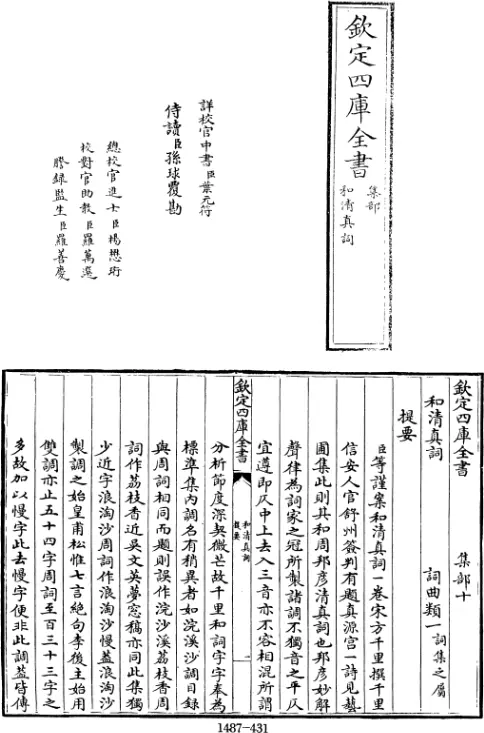 欽定四庫全書
集部
和清真詞
詳校官中書臣葉元符
侍讀臣孫球覆勘
總校官進士臣楊懋珩
校對官助教臣羅萬選
謄錄監生臣羅善慶
欽定四庫全書 集部十
和清真詞 詞曲類一詞集之屬
提要
臣等謹案和清真詞一卷宋方千里撰千里
信安人官舒州簽判有題真源宮一詩見藝
圃集此則其和周邦彥清真詞也邦彥妙解
聲律為詞家之冠所製諸調不獨音之平仄
宜遵即仄中上去入三音亦不容相混所謂
欽定四庫全書
和清真詞
提要
一
分析節度深契微芒故千里和詞字字奉為
標準集內調名有稍異者如浣溪沙調目錄
與周詞相同而題則誤作浣沙溪荔枝香周
詞作荔枝香近吳文英夢窓稿亦同此集獨
少近字浪淘沙周詞作浪淘沙慢蓋浪淘沙
製調之始皇甫松惟七言絶句李後主始用
雙調亦止五十四字周詞至百三十三字之
多故加以慢字此去慢字便非此調蓋皆傳
1487-431